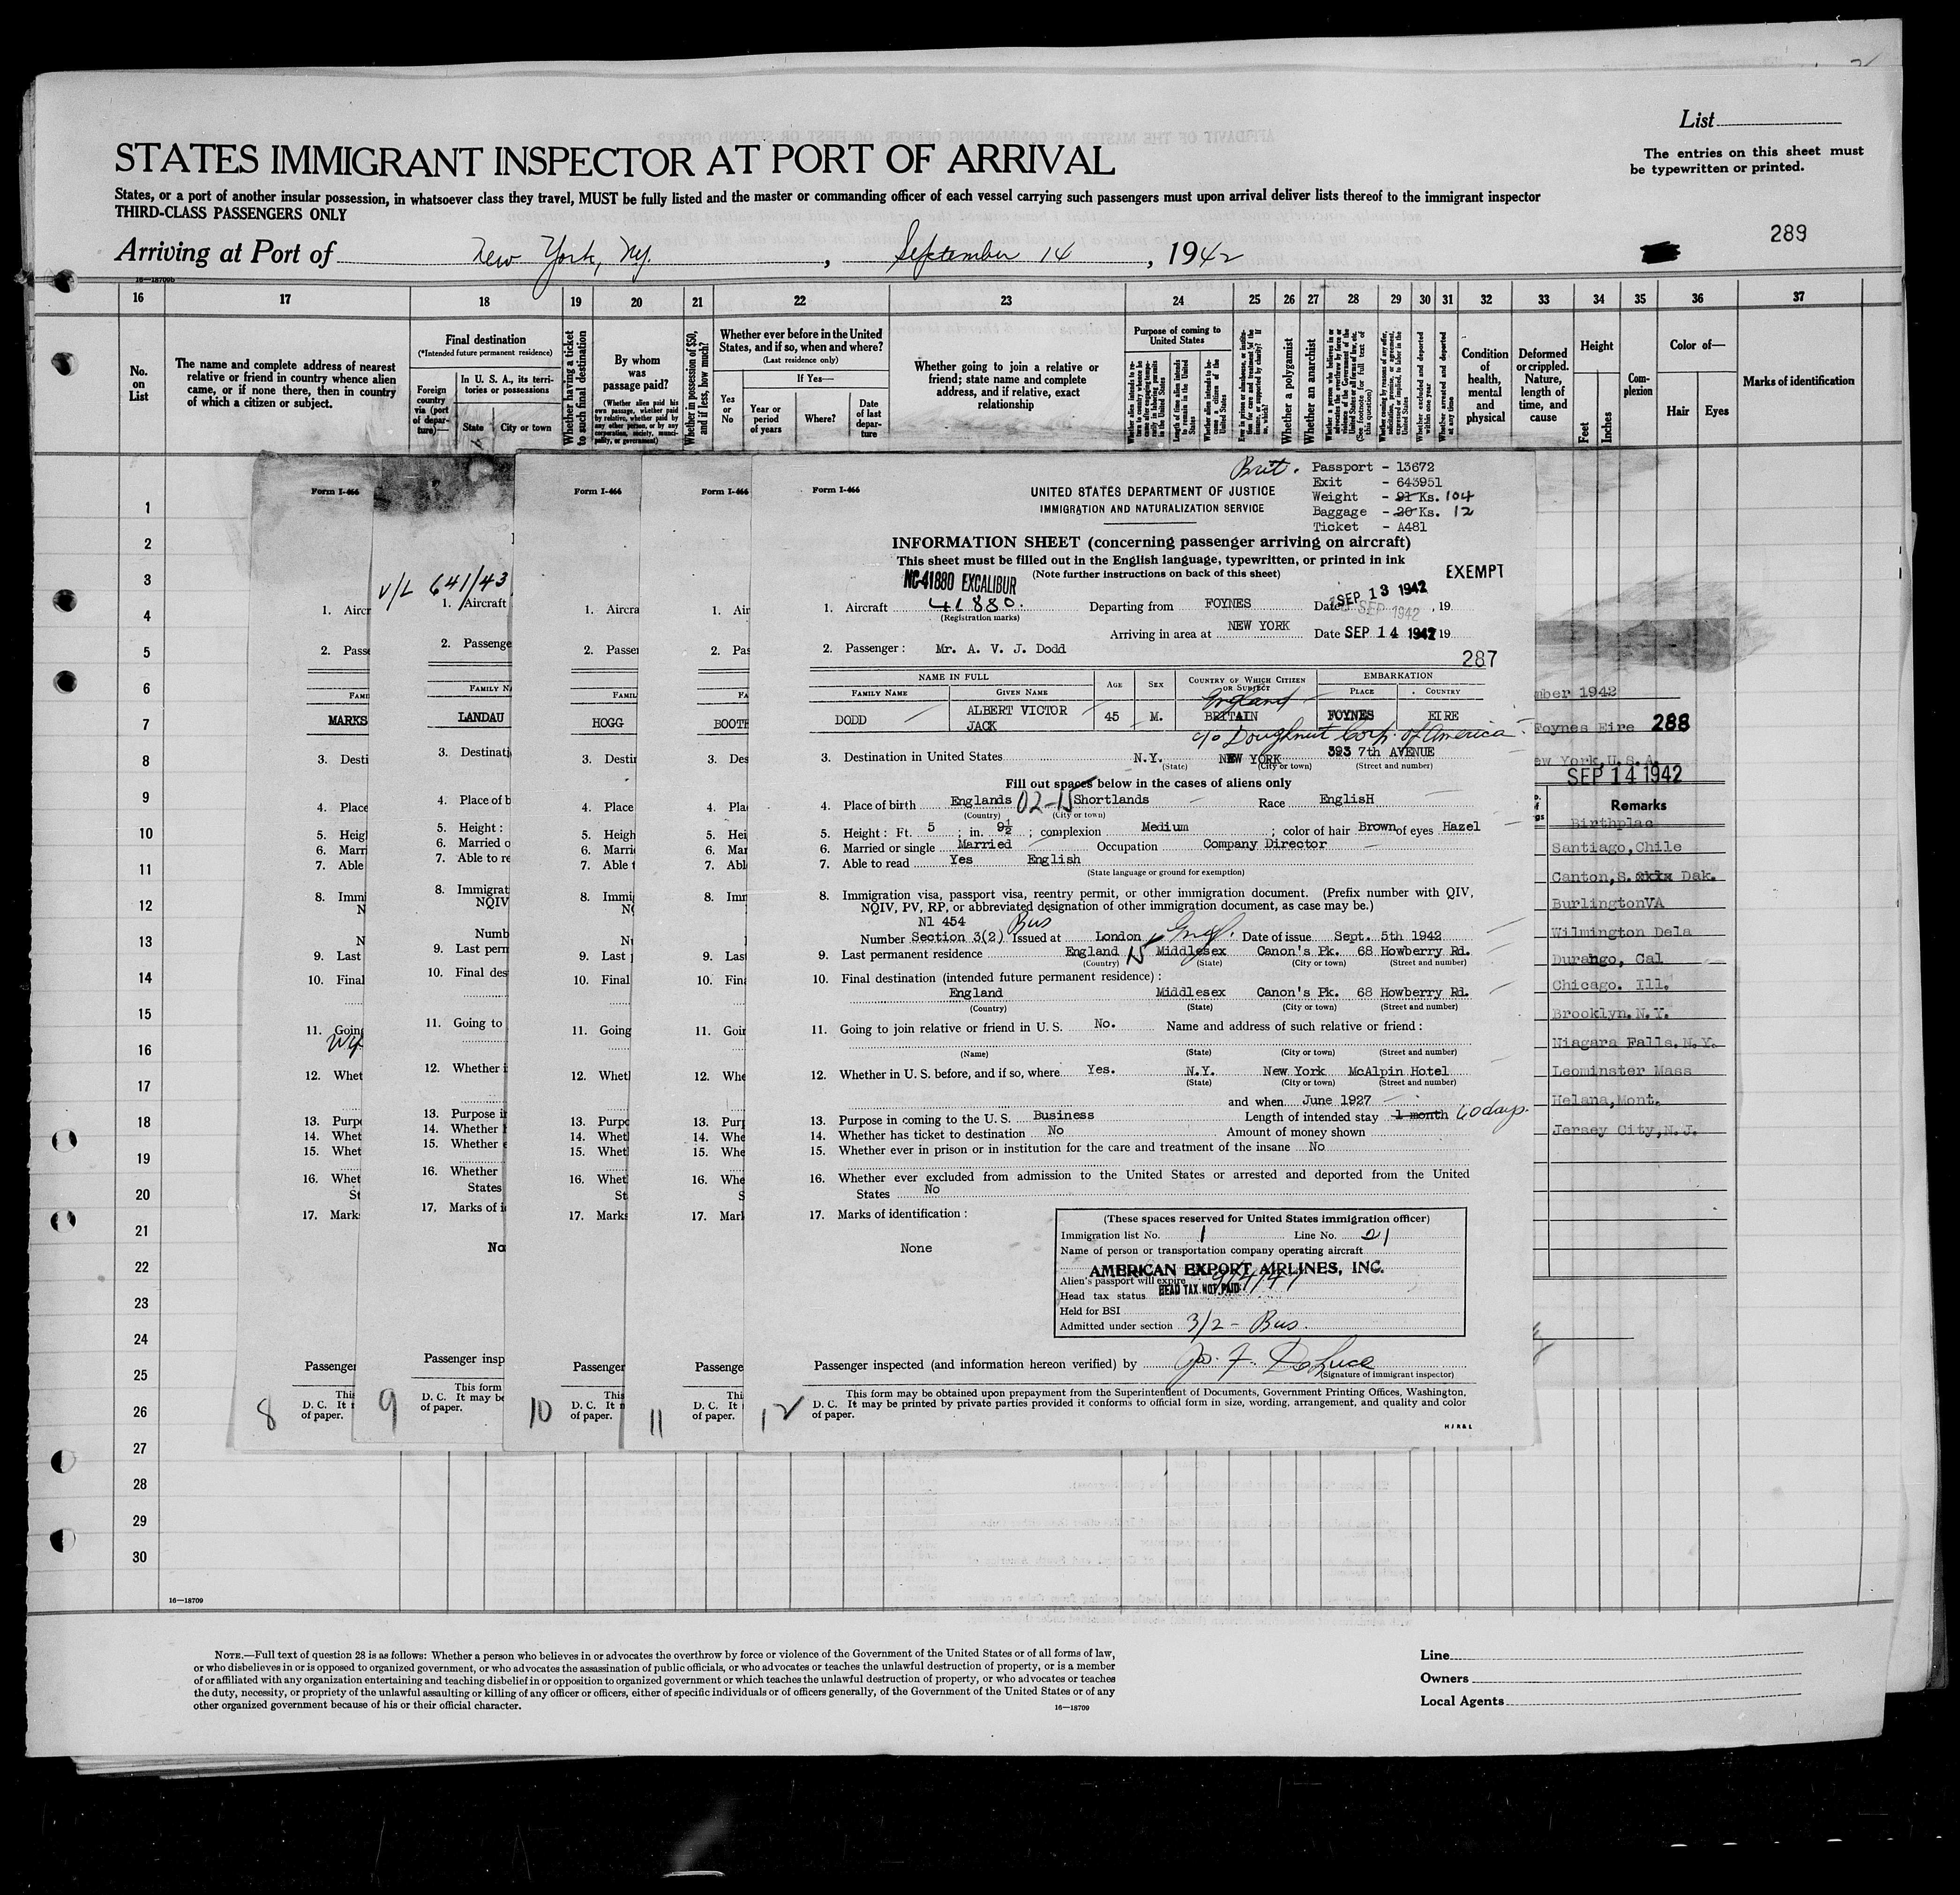 List
STATES IMMIGRANT INSPECTOR AT PORT OF ARRIVAL
The entries on this sheet must
be typewritten or printed.
States, or a port of another insular possession, in whatsoever class they travel, MUST be fully listed and the master or commanding officer of each vessel carrying such passengers must upon arrival deliver lists thereof to the immigrant inspector
THIRD-CLASS PASSENGERS ONLY
289
Arriving at Port of New York, Ny. , September 14 , 1942
16—18709b
16 17 18 19 20 21 22 23 24 25 26 27 28 29 30 31 32 33 34 35 36 37
No. on List
The name and complete address of nearest relative or friend in country whence alien came, or if none there, then in country of which a citizen or subject.
Final destination
(*Intended future permanent residence)
Foreign country via (port of departure)—
In U. S. A., its territories or possessions
State
City or town
Whether having a ticket to such final destination
By whom was passage paid?
(Whether alien paid his own passage, whether paid by relative, whether paid by any other person, or by any corporation, society, municipality, or government)
Whether in possession of $50, and if less, how much?
Whether ever before in the United States, and if so, when and where?
(Last residence only)
If Yes—
Yes or No
Year or period of years
Where?
Date of last departure
Whether going to join a relative or friend; state name and complete address, and if relative, exact relationship
Purpose of coming to United States
Length of time alien intends to remain in the United States
Whether alien intends to become a citizen of the United States
Whether a polygamist
Whether an anarchist
Whether excluded and deported within one year
Whether arrested and deported at any time
Condition of health, mental and physical
Deformed or crippled. Nature, length of time, and cause
Height
Feet
Inches
Complexion
Color of—
Hair
Eyes
Marks of identification
1
2
3
4
5
6
7
8
9
10
11
12
13
14
15
16
17
18
19
20
21
22
23
24
25
26
27
28
29
30
Form I-466
1. Aircr
2. Passe
FAMI
MARKS
3. Desti
4. Place
5. Heigh
6. Marri
7. Able
8. Immi
N
N
9. Last
10. Final
11. Going
12. Whet
13. Purpo
14. Whet
15. Whet
16. Whet
St
17. Marks
Passenger
This
D. C. It
of paper.
8
V/L 641/43
1. Aircraft
2. Passenge
FAMILY NA
LANDAU
3. Destinati
4. Place of b
5. Height :
6. Married o
7. Able to re
8. Immigrat
NQIV
Numb
9. Last perm
10. Final des
11. Going to
12. Whether i
13. Purpose i
14. Whether
15. Whether e
16. Whether
States
17. Marks of i
No
Passenger insp
This form
D. C. It may be
of paper.
9
Form I-466
1. Aircra
2. Passen
FAMIL
HOGG
3. Destin
4. Place
5. Heigh
6. Marri
7. Able t
8. Immig
NQ
Nu
9. Last
10. Final
11. Going
12. Wheth
13. Purpo
14. Whet
15. Whet
16. Whet
St
17. Marks
Passenger
This
D. C. It m
of paper.
10
Form I-466
1. Air
2. Pas
FA
BOOTH
3. Des
4. Pla
5. Hei
6. Mar
7. Abl
8. Imm
9. Las
10. Fina
11. Goi
12. Whe
13. Purp
14. Whe
15. Whe
16. Whe
S
17. Marl
Passenge
Thi
D. C. It
of paper.
11
Form I-466
Brit.
Passport - 13672
Exit - 643951
Weight - 91 Ks. 104
Baggage - 20 Ks. 12
Ticket - A481
UNITED STATES DEPARTMENT OF JUSTICE
IMMIGRATION AND NATURALIZATION SERVICE
INFORMATION SHEET (concerning passenger arriving on aircraft)
This sheet must be filled out in the English language, typewritten, or printed in ink
(Note further instructions on back of this sheet)
EXEMPT
NC-41880 EXCALIBUR
1. Aircraft 41880. Departing from FOYNES Date SEP 13 1942 , 19
SEP 1942
(Registration marks)
Arriving in area at NEW YORK Date SEP 14 1942 19
2. Passenger : Mr. A. V. J. Dodd
287
NAME IN FULL
FAMILY NAME
GIVEN NAME
AGE
SEX
COUNTRY OF WHICH CITIZEN OR SUBJECT
EMBARKATION
PLACE
COUNTRY
England
DODD ALBERT VICTOR JACK 45 M. BRITAIN FOYNES EIRE
c/o Doughnut Corp. of America
3. Destination in United States N.Y. NEW YORK 393 7th AVENUE
(State) (City or town) (Street and number)
Fill out spaces below in the cases of aliens only
4. Place of birth Englands 02-15 Shortlands Race EnglisH
(Country) (City or town)
5. Height : Ft. 5 ; in. 9½ ; complexion Medium ; color of hair Brown of eyes Hazel
6. Married or single Married Occupation Company Director
7. Able to read Yes English
(State language or ground for exemption)
8. Immigration visa, passport visa, reentry permit, or other immigration document. (Prefix number with QIV,
NQIV, PV, RP, or abbreviated designation of other immigration document, as case may be.)
N1 454 Bus
Number Section 3(2) Issued at London Eng. Date of issue Sept. 5th 1942
9. Last permanent residence England 15 Middlesex Canon's Pk. 68 Howberry Rd.
(Country) (State) (City or town) (Street and number)
10. Final destination (intended future permanent residence) :
England Middlesex Canon's Pk. 68 Howberry Rd.
(Country) (State) (City or town) (Street and number)
11. Going to join relative or friend in U. S. No. Name and address of such relative or friend :
(Name) (State) (City or town) (Street and number)
12. Whether in U. S. before, and if so, where Yes. N.Y. New York McAlpin Hotel
(State) (City or town) (Street and number)
and when June 1927
13. Purpose in coming to the U. S. Business Length of intended stay 1 month 60 days.
14. Whether has ticket to destination No Amount of money shown
15. Whether ever in prison or in institution for the care and treatment of the insane No
16. Whether ever excluded from admission to the United States or arrested and deported from the United
States No
17. Marks of identification :
None
(These spaces reserved for United States immigration officer)
Immigration list No. 1 Line No. 21
Name of person or transportation company operating aircraft
AMERICAN EXPORT AIRLINES, INC.
Alien's passport will expire 9/4/47
Head tax status HEAD TAX NOT PAID
Held for BSI
Admitted under section 3/2 - Bus.
Passenger inspected (and information hereon verified) by
(Signature of immigrant inspector)
This form may be obtained upon prepayment from the Superintendent of Documents, Government Printing Offices, Washington,
D. C. It may be printed by private parties provided it conforms to official form in size, wording, arrangement, and quality and color
of paper.
H J R & L
12
mber 1942
Foynes Eire 288
ew York, U.S.A.
SEP 14 1942
Remarks
Birthplac
Santiago, Chile
Canton, S. Dak.
Burlington VA
Wilmington Dela
Durango, Cal
Chicago. Ill.
Brooklyn. N.Y.
Niagara Falls. N.Y.
Leominster Mass
Helana, Mont.
Jersey City, N.J.
16—18709
NOTE.—Full text of question 28 is as follows: Whether a person who believes in or advocates the overthrow by force or violence of the Government of the United States or of all forms of law,
or who disbelieves in or is opposed to organized government, or who advocates the assassination of public officials, or who advocates or teaches the unlawful destruction of property, or is a member
of or affiliated with any organization entertaining and teaching disbelief in or opposition to organized government or which teaches the unlawful destruction of property, or who advocates or teaches
the duty, necessity, or propriety of the unlawful assaulting or killing of any officer or officers, either of specific individuals or of officers generally, of the Government of the United States or of any
other organized government because of his or their official character.
16—18709
Line
Owners
Local Agents